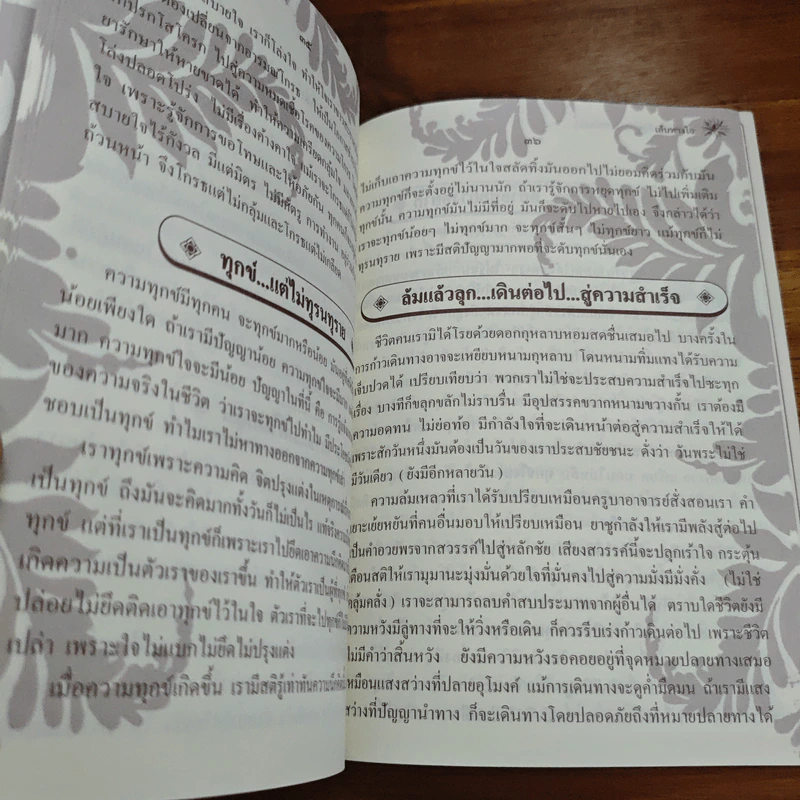 ๓๕
สบายใจ เราก็โล่งใจ ทำให้
ต้องเปลี่ยนจากอารมณ์โกรธ ให้เป็น
ไปสู่ความหมดเชื้อโรคของความ
ยารักษาให้หายขาดได้ ทำให้ความเครียดกลุ้ม
โล่งปลอดโปร่ง ไม่มีเรื่องค้างคา
ใจ เพราะรู้จักการขอโทษและให้อภัยกัน ทุกคน
สบายใจไร้กังวล มีแต่มิตร ไม่มีศัตรู การทำงาน
ถ้วนหน้า จึงโกรธแต่ไม่กลุ้มและโกรธแต่ไม่เกลียด
ทุกข์...แต่ไม่ทุรนทุราย
ความทุกข์มีทุกคน จะทุกข์มากหรือน้อย
น้อยเพียงใด ถ้าเรามีปัญญาน้อย ความทุกข์ใจจะมี
มาก ความทุกข์ใจจะมีน้อย ปัญญาในที่นี้ คือ การรู้
ของความจริงในชีวิต ว่าเราจะทุกข์ไปทำไม มีประโยชน์
ชอบเป็นทุกข์ ทำไมเราไม่หาทางออกจากความทุกข์
เราทุกข์เพราะความคิด จิตปรุงแต่งในเหตุการณ์
เป็นทุกข์ ถึงมันจะคิดมากทั้งวันก็ไม่เป็นไร แท้จริง
ทุกข์ แต่ที่เราเป็นทุกข์ก็เพราะเราไปยึดเอาความ
เกิดความเป็นตัวเราของเราขึ้น ทำให้ตัวเราเป็นผู้
ปล่อยไม่ยึดติดเอาทุกข์ไว้ในใจ ตัวเราที่จะไปทุกข์
เปล่า เพราะใจไม่แบกไม่ยึดไม่ปรุงแต่ง
เมื่อความทุกข์เกิดขึ้น เรามีสติรู้เท่าทันความ
๓๖
เส้นทางใจ
ไม่เก็บเอาความทุกข์ไว้ในใจสลัดทิ้งมันออกไปไม่ยอมคิดร่วมกับมัน
ทุกข์ก็จะตั้งอยู่ไม่นานนัก ถ้าเรารู้จักการหยุดทุกข์ ไม่ไปเพิ่มเติม
ทุกข์นั้น ความทุกข์มันไม่มีที่อยู่ มันก็จะดับไปหายไปเอง จึงกล่าวได้ว่า
เราจะทุกข์น้อยๆ ไม่ทุกข์มาก จะทุกข์สั้นๆ ไม่ทุกข์ยาว แม้ทุกข์ก็ไม่
ทุรนทุราย เพราะมีสติปัญญามากพอที่จะดับทุกข์นั่นเอง
ล้มแล้วลุก...เดินต่อไป...สู่ความสำเร็จ
ชีวิตคนเรามิได้โรยด้วยดอกกุหลาบหอมสดชื่นเสมอไป บางครั้งใน
การก้าวเดินทางอาจจะเหยียบหนามกุหลาบ โดนหนามทิ่มแทงได้รับความ
เจ็บปวดได้ เปรียบเทียบว่า พวกเราไม่ใช่จะประสบความสำเร็จไปซะทุก
เรื่อง บางทีก็ขลุกขลักไม่ราบรื่น มีอุปสรรคขวากหนามขวางกั้น เราต้องมี
ความอดทน ไม่ย่อท้อ มีกำลังใจที่จะเดินหน้าต่อสู่ความสำเร็จให้ได้
เพราะสักวันหนึ่งมันต้องเป็นวันของเราประสบชัยชนะ ดั่งว่า วันพระไม่ใช่
มีวันเดียว (ยังมีอีกหลายวัน)
ความล้มเหลวที่เราได้รับเปรียบเหมือนครูบาอาจารย์สั่งสอนเรา คำ
เยาะเย้ยหยันที่คนอื่นมอบให้เปรียบเหมือน ยาชูกำลังให้เรามีพลังสู้ต่อไป
เป็นคำอวยพรจากสวรรค์ไปสู่หลักชัย เสียงสวรรค์นี้จะปลุกเร้าใจ กระตุ้น
เตือนสติให้เรามุมานะมุ่งมั่นด้วยใจที่มั่นคงไปสู่ความมั่งมีมั่งคั่ง (ไม่ใช่
คลุ้มคลั่ง) เราจะสามารถลบคำสบประมาทจากผู้อื่นได้ ตราบใดชีวิตยังมี
ความหวังมีลู่ทางที่จะให้วิ่งหรือเดิน ก็ควรรีบเร่งก้าวเดินต่อไป เพราะชีวิต
ไม่มีคำว่าสิ้นหวัง ยังมีความหวังรอคอยอยู่ที่จุดหมายปลายทางเสมอ
เหมือนแสงสว่างที่ปลายอุโมงค์ แม้การเดินทางจะดูค่ำมืดมน ถ้าเรามีแสง
สว่างที่ปัญญานำทาง ก็จะเดินทางโดยปลอดภัยถึงที่หมายปลายทางได้